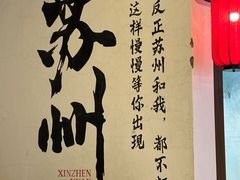 苏州
XINZHEN
反正苏州和我，都不
这样慢慢等你出现